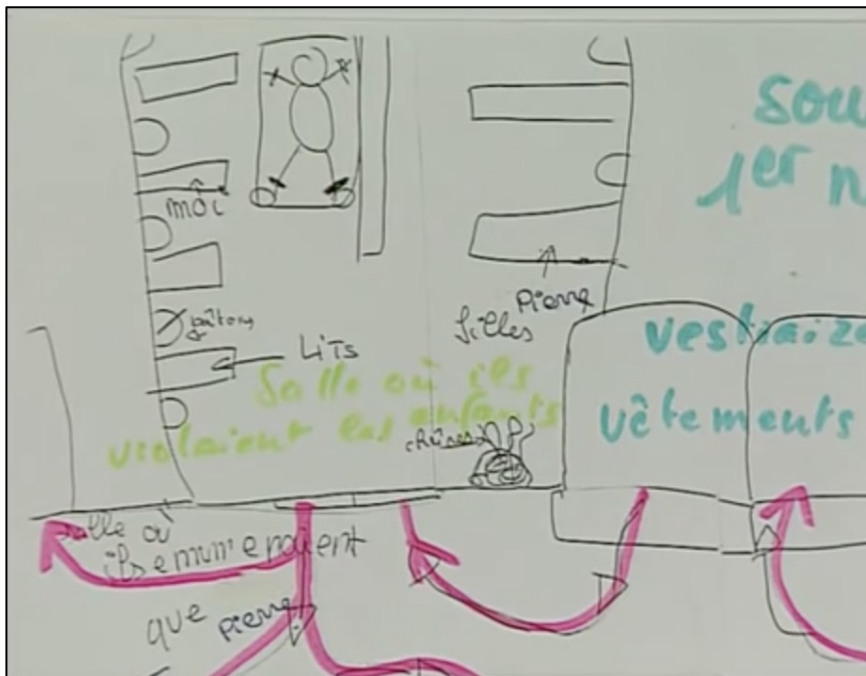 sou
1er n
moi
Pierre
filles
bâtons
LiTs
vestiaire
Salle où ils
violaient les enfants
vêtements
salle où
ils emmenaient
que Pierre